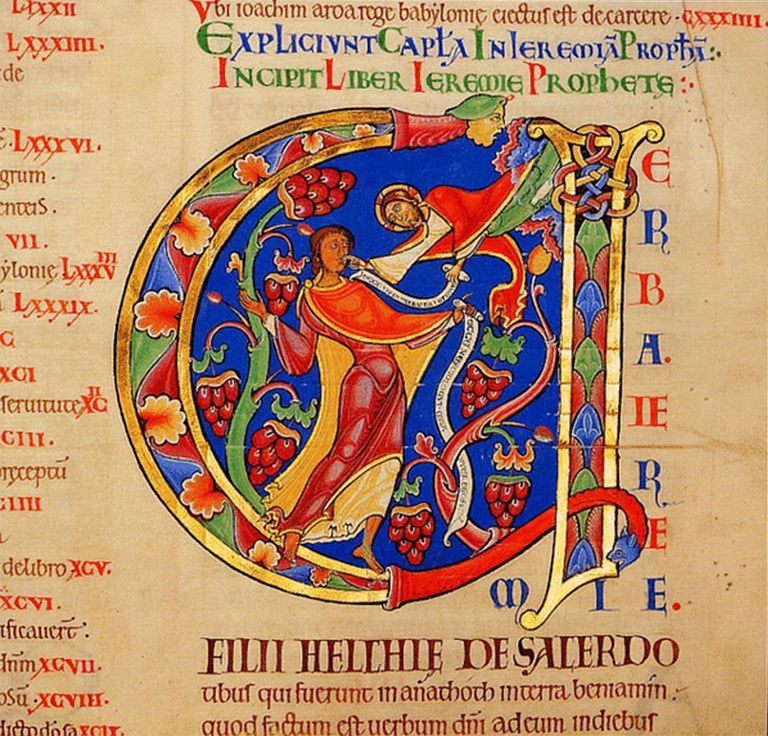 LXXXII
LXXXIIII.
de
LXXXVI.
grum.
enteıS.
VII.
ylonie LXXXVIII
LXXXIX.
C
XCI
seruitute XCII
CIII.
preceptū
CIIII
delibro XCV.
XCVI.
tificauert:
dnm XCVII.
osu · XCVIII.
XCIX.
Vbi ioachim aroarege babylonie eiectus est decarcere · CXXXIIII.
EXPLICIVNT CAPLA IN IEREMIĀ PROPHĒ:.
INCIPIT LIBER IEREMIE PROPHETE:.
V
E
R
B
A.
IE
R
E
M I E.
FILII HELCHIE DE SACERDO
tibus qui fuerunt in anathoth interra beniamin.
quod factum est uerbum dni ad eum indiebus